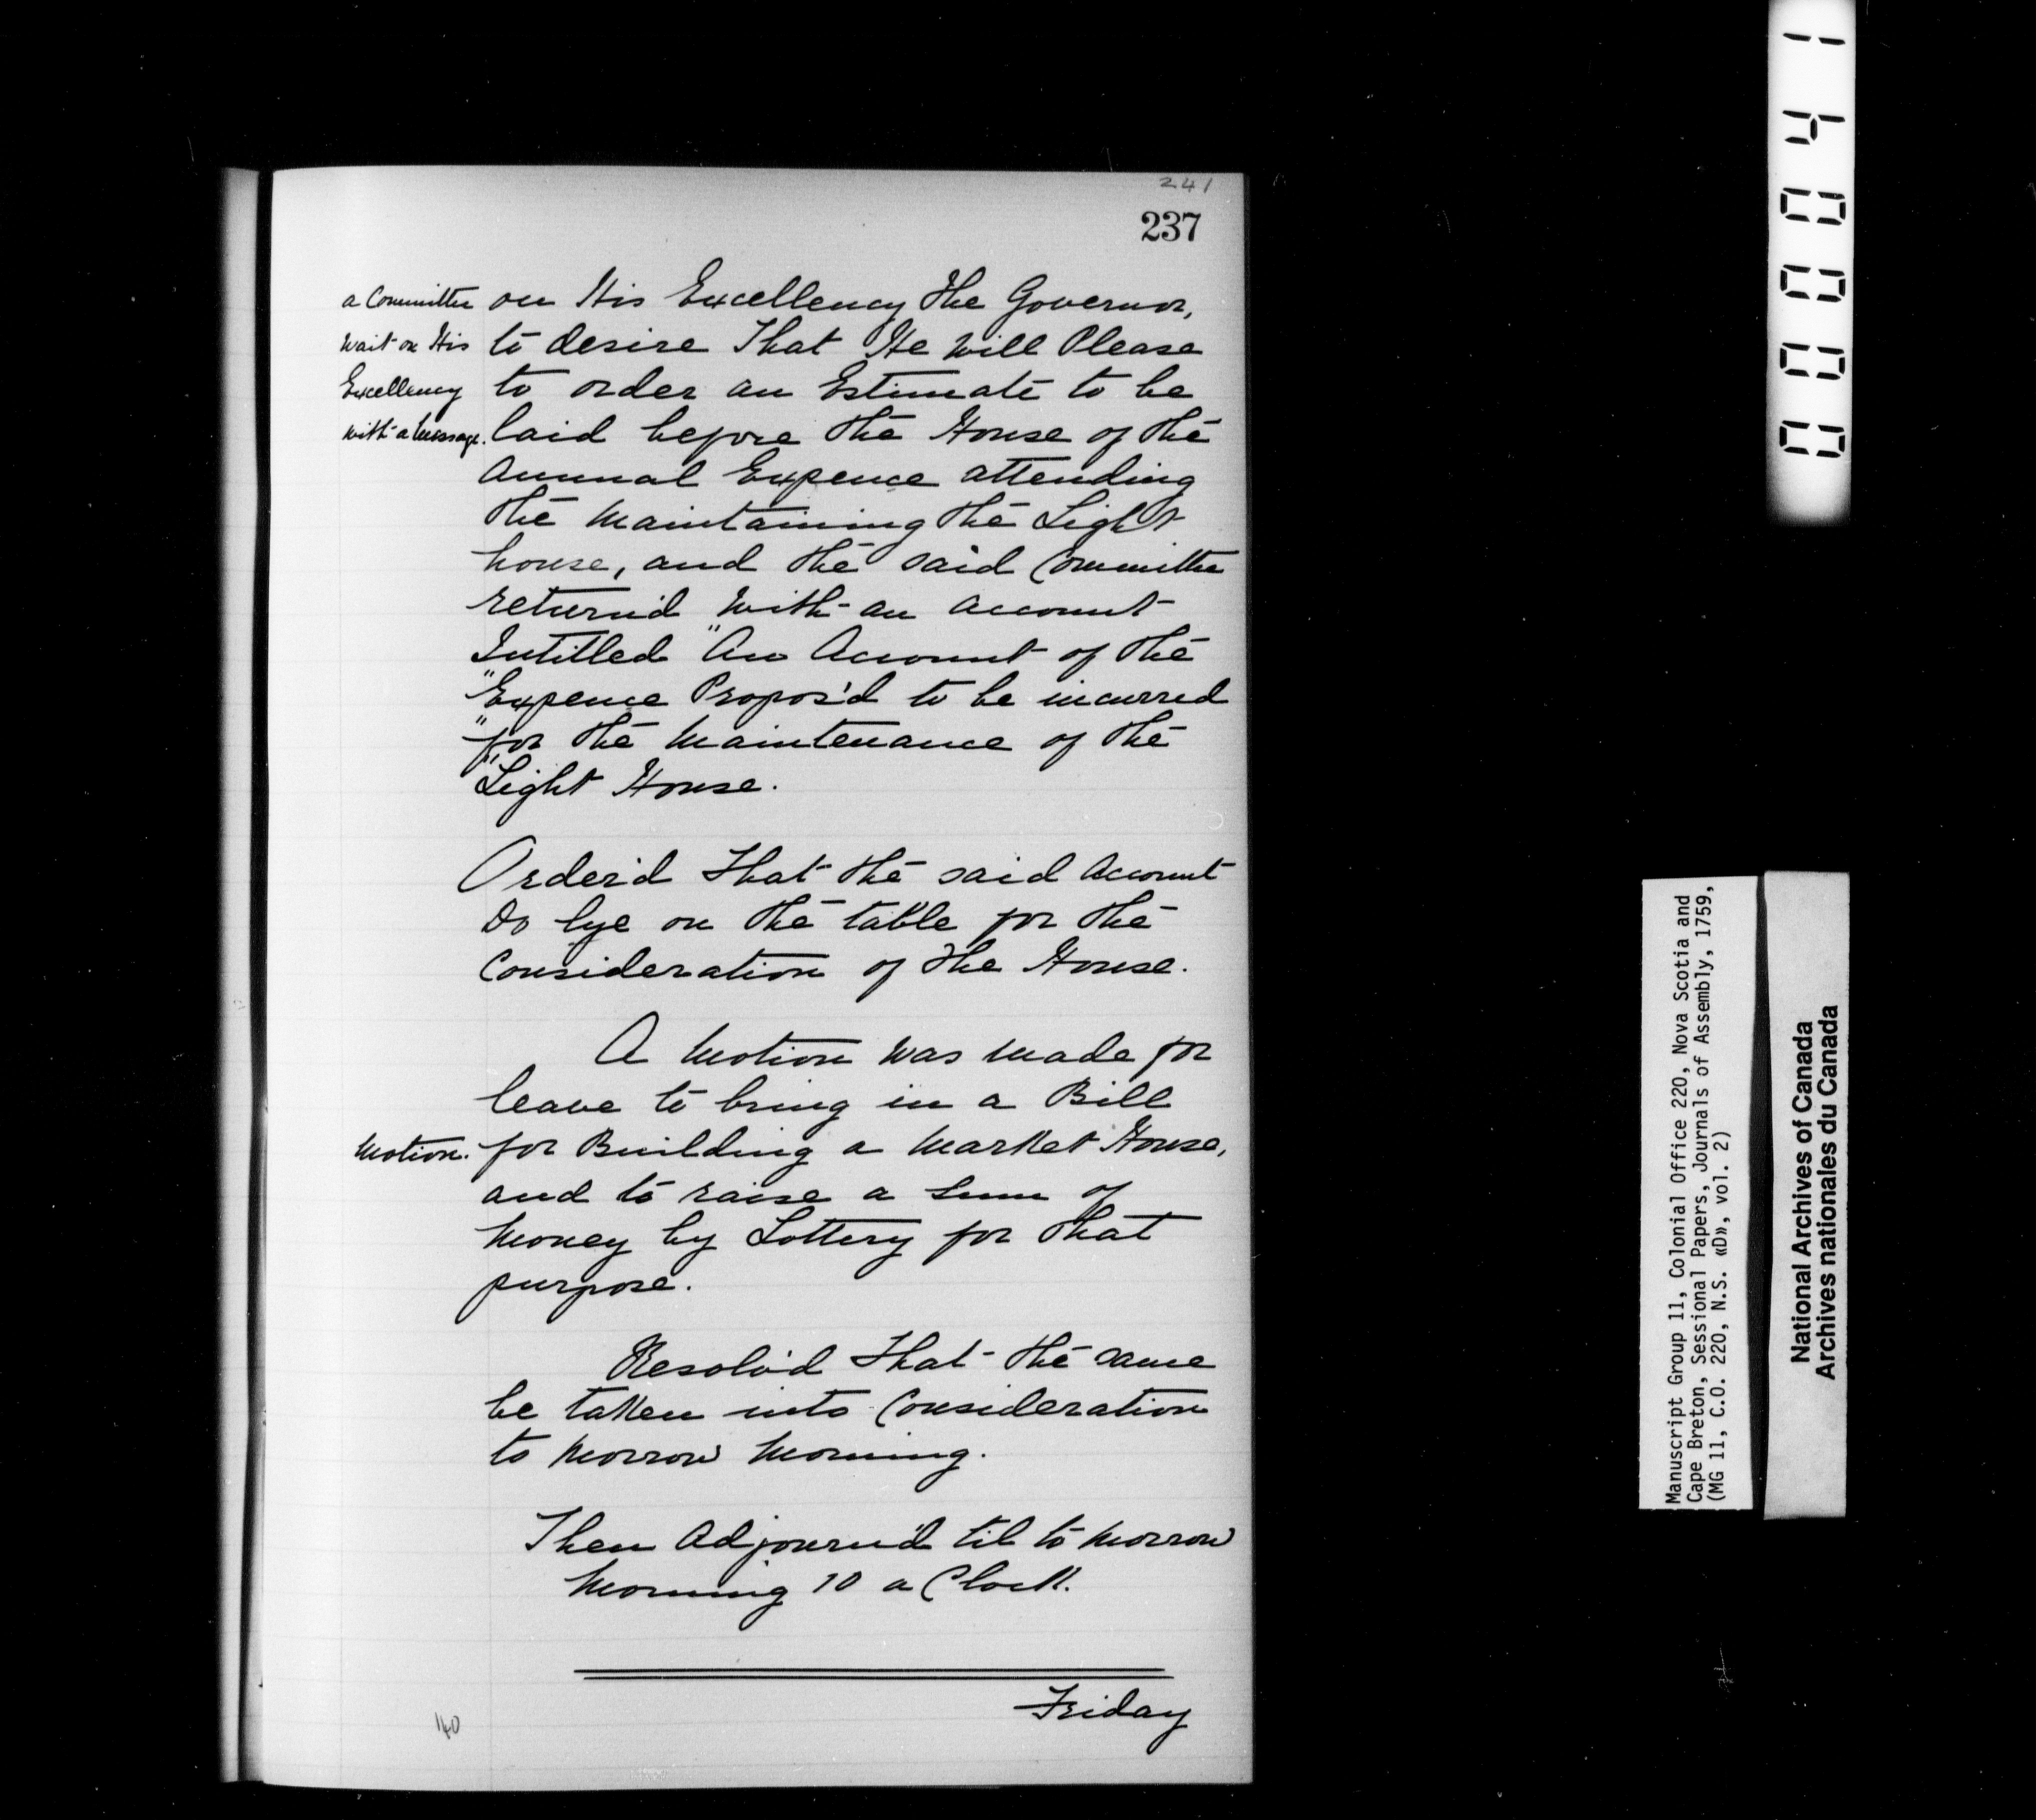 241
237
a Committee
wait on His
Excellency
with a Message.
on His Excellency the Governor,
to desire That He will Please
to order an Estimate to be
laid before the House of the
Annual Expence attending
the Maintaining the Light
house, and the said Committee
return'd with an account
Intitled "An Account of the
"Expence Propos'd to be incurred
"for the Maintenance of the
"Light House.
Order'd That the said Account
Do lye on the table for the
Consideration of the House.
A Motion was made for
leave to bring in a Bill
Motion.
for Building a Market House,
and to raise a Sum of
Money by Lottery for that
purpose.
Resolv'd That the same
be taken into Consideration
to Morrow Morning.
Then Adjourn'd til to Morrow
Morning 10 a Clock.
Friday
140
000041
Manuscript Group 11, Colonial Office 220, Nova Scotia and
Cape Breton, Sessional Papers, Journals of Assembly, 1759,
(MG 11, C.O. 220, N.S. «D», vol. 2)
National Archives of Canada
Archives nationales du Canada